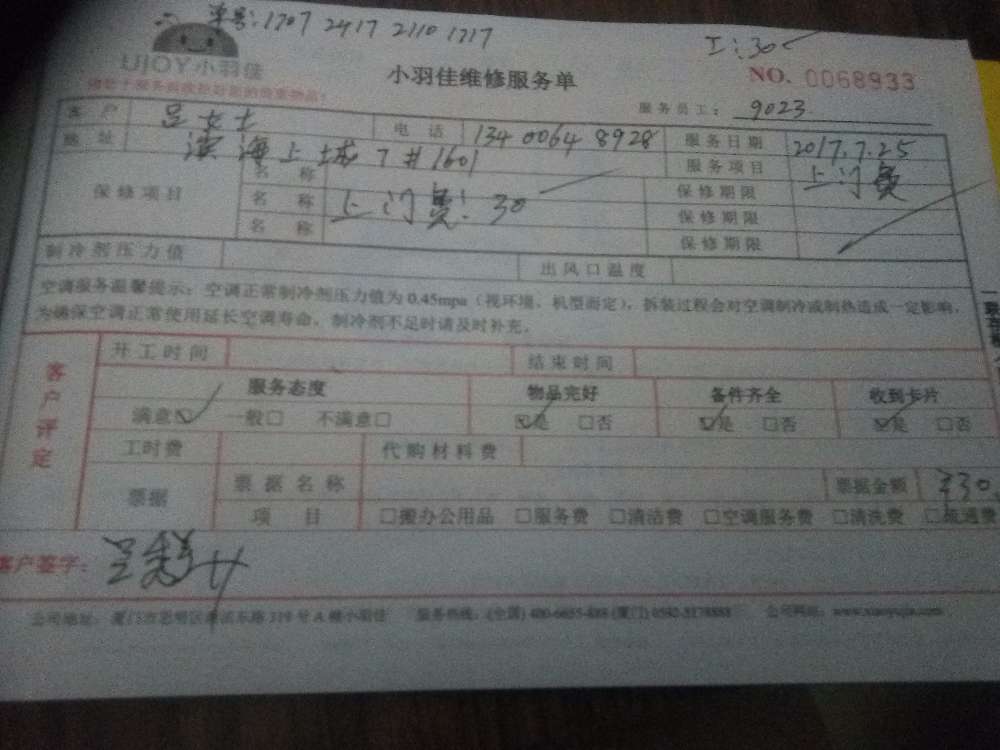 单号:1707 2417 2110 1717
工:30
UJOY小羽佳
小羽佳维修服务单
NO. 0068933
服务员工: 9023
客户 吕女士 电话 134 0064 8928 服务日期 2017.7.25
地址 滨海上城7#1601 服务项目 上门费
保修项目 名称 保修期限
名称 上门费:30 保修期限
名称 保修期限
制冷剂压力值 出风口温度
空调服务温馨提示:空调正常制冷剂压力值为0.45mpa(视环境、机型而定),拆装过程会对空调制冷或制热造成一定影响,
为确保空调正常使用延长空调寿命,制冷剂不足时请及时补充。
客户评定
开工时间 结束时间
服务态度 物品完好 备件齐全 收到卡片
满意☑ 一般□ 不满意□ ☑是 □否 ☑是 □否 ☑是 □否
工时费 代购材料费
票据 票据名称 票据金额 ¥30
项目 □搬办公用品 □服务费 □清洁费 □空调服务费 □清洗费 □疏通费
客户签字:
公司地址:厦门市思明区 东路319号A 楼小羽佳 服务热线:(全国) (厦门) 公司网址:www.xiaoyujia.com